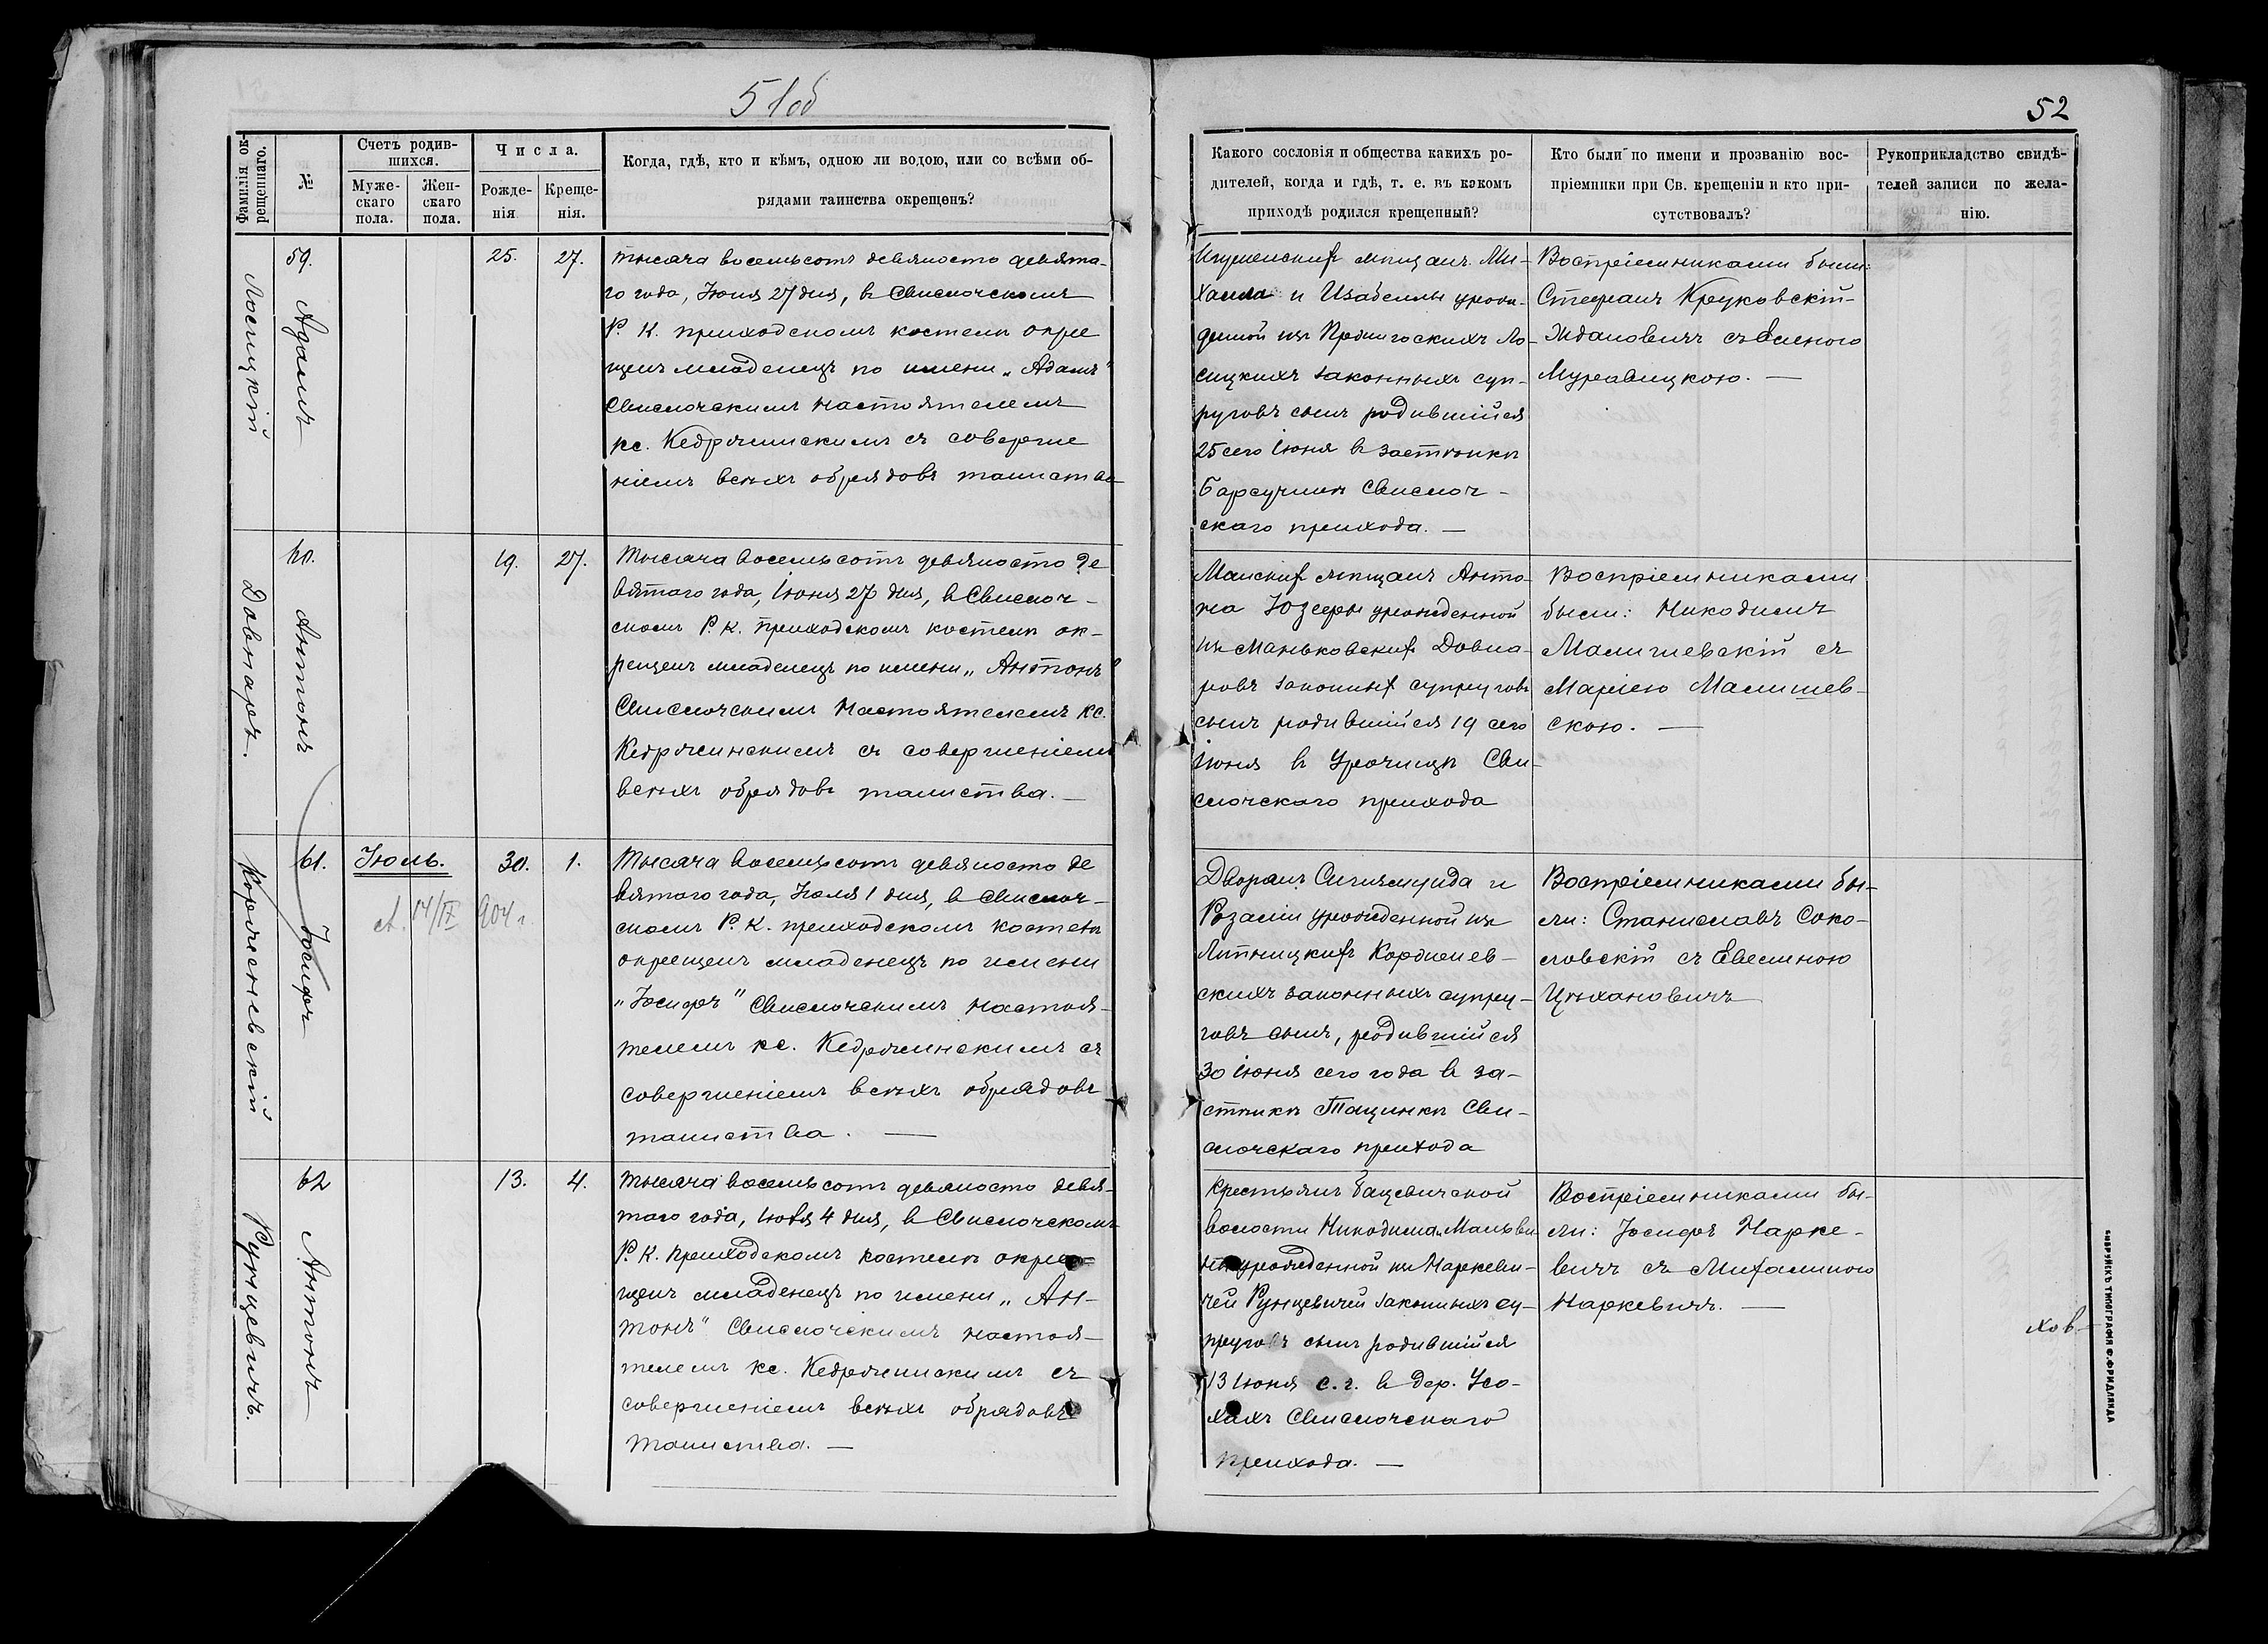 51об
Фамилія ок-
рещеннаго.
№
Счетъ родив-
шихся.
Муже-
скаго
пола.
Жен-
скаго
пола.
Числа.
Рожде-
нія
Креще-
нія.
Когда, гдѣ, кто и кѣмъ, одною ли водою, или со всѣми об-
рядами таинства окрещенъ?
Лосицкій
59.
Адамъ
25.
27.
Тысяча восемьсотъ девяносто девята-
го года, Іюня 27 дня, въ Свислочскомъ
Р. К. приходскомъ костелѣ окре
щенъ младенецъ по имени „Адамъ"
Свислочскимъ Настоятелемъ
кс. Кедржинскимъ съ соверше
ніемъ всѣхъ обрядовъ таинства
Довнаръ.
60.
Антонъ
19.
27.
Тысяча восемьсотъ девяносто де
вятаго года, Іюня 27 дня, въ Свислоч-
скомъ Р. К. приходскомъ костелѣ ок-
рещенъ младенецъ по имени „Антонъ"
Свислочскимъ Настоятелемъ кс.
Кедржинскимъ съ совершеніемъ
всѣхъ обрядовъ таинства. —
Кордзеневскій
61.
Іосифъ
Іюль.
30.
1.
14/IX 904 г.
Тысяча восемьсотъ девяносто де
вятаго года, Іюля 1 дня, въ Свислоч-
скомъ Р. К. приходскомъ костелѣ
окрещенъ младенецъ по имени
„Іосифъ" Свислочскимъ Настоя-
телемъ кс. Кедржинскимъ съ
совершеніемъ всѣхъ обрядовъ
таинства. —
Рунцевичъ.
62
Антонъ
13.
4.
Тысяча восемьсотъ девяносто девя-
таго года, Іюля 4 дня, въ Свислочскомъ
Р. К. приходскомъ костелѣ окре-
щенъ младенецъ по имени „Ан-
тонъ" Свислочскимъ настоя-
телемъ кс. Кедржинскимъ съ
совершеніемъ всѣхъ обрядовъ
таинства. —
52
Какого сословія и общества какихъ ро-
дителей, когда и гдѣ, т. е. въ какомъ
приходѣ родился крещенный?
Кто были по имени и прозванію вос-
пріемники при Св. крещеніи и кто при-
сутствовалъ?
Рукоприкладство свидѣ-
телей записи по жела-
нію.
Игуменских мѣщанъ Ми-
хаила и Изабеллы урож-
денной изъ Ло-
сицкихъ законныхъ суп-
руговъ сынъ родившійся
25 сего Іюня въ застѣнкѣ
Барсучинѣ Свислоч-
скаго прихода. —
Воспріемниками были:
Стефанъ Круковскій-
Ждановичъ съ Еленою
Муравицкою. —
Минских мѣщанъ Анто-
на Юзефы урожденной
изъ Маньковских Довна-
ровъ законных супруговъ
сынъ родившійся 19 сего
Іюня въ Урочищѣ Сви-
слочскаго прихода
Воспріемниками
были: Никодимъ
Малишевскій съ
Маріею Малишев-
скою. —
Дворянъ Сигизмунда и
Розаліи урожденной изъ
Лѣтницких Кордзенев-
скихъ законныхъ супру-
говъ сынъ, родившійся
30 Іюня сего года въ за-
стѣнкѣ Тацинкѣ Сви-
слочскаго прихода
Воспріемниками бы-
ли: Станиславъ Соко-
ловскій съ Евелиною
Цѣхановичъ
Крестьянъ Бацевичской
волости Никодима и Мальви-
ны урожденной изъ Наркеви-
чей Рунцевичей законныхъ су-
пруговъ сынъ родившійся
13 Іюня с. г. въ дер. Усо-
хахъ Свислочскаго
прихода. —
Воспріемниками бы-
ли: Іосифъ Нарке-
вичъ съ Михалиною
Наркевичъ. —
хов-
БОБРУЙСКЪ ТИПОГРАФІЯ Ф. ФРИДЛЯНДА